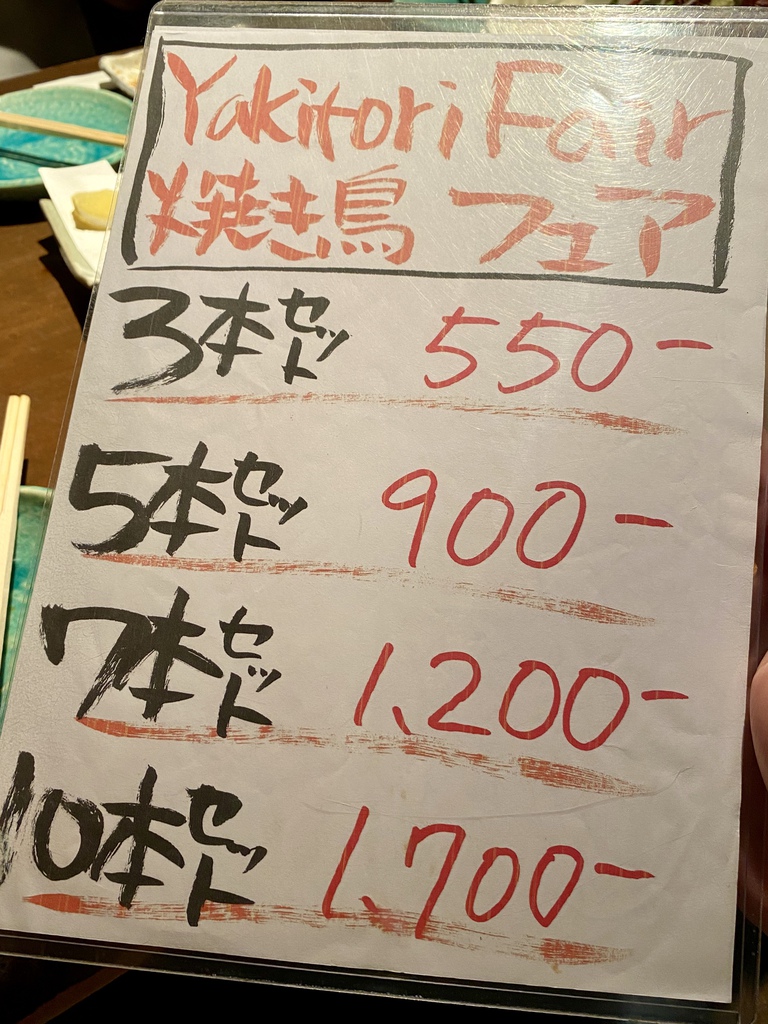 Yakitori Fair
焼き鳥 フェア
3本セット 550-
5本セット 900-
7本セット 1,200-
10本セット 1,700-